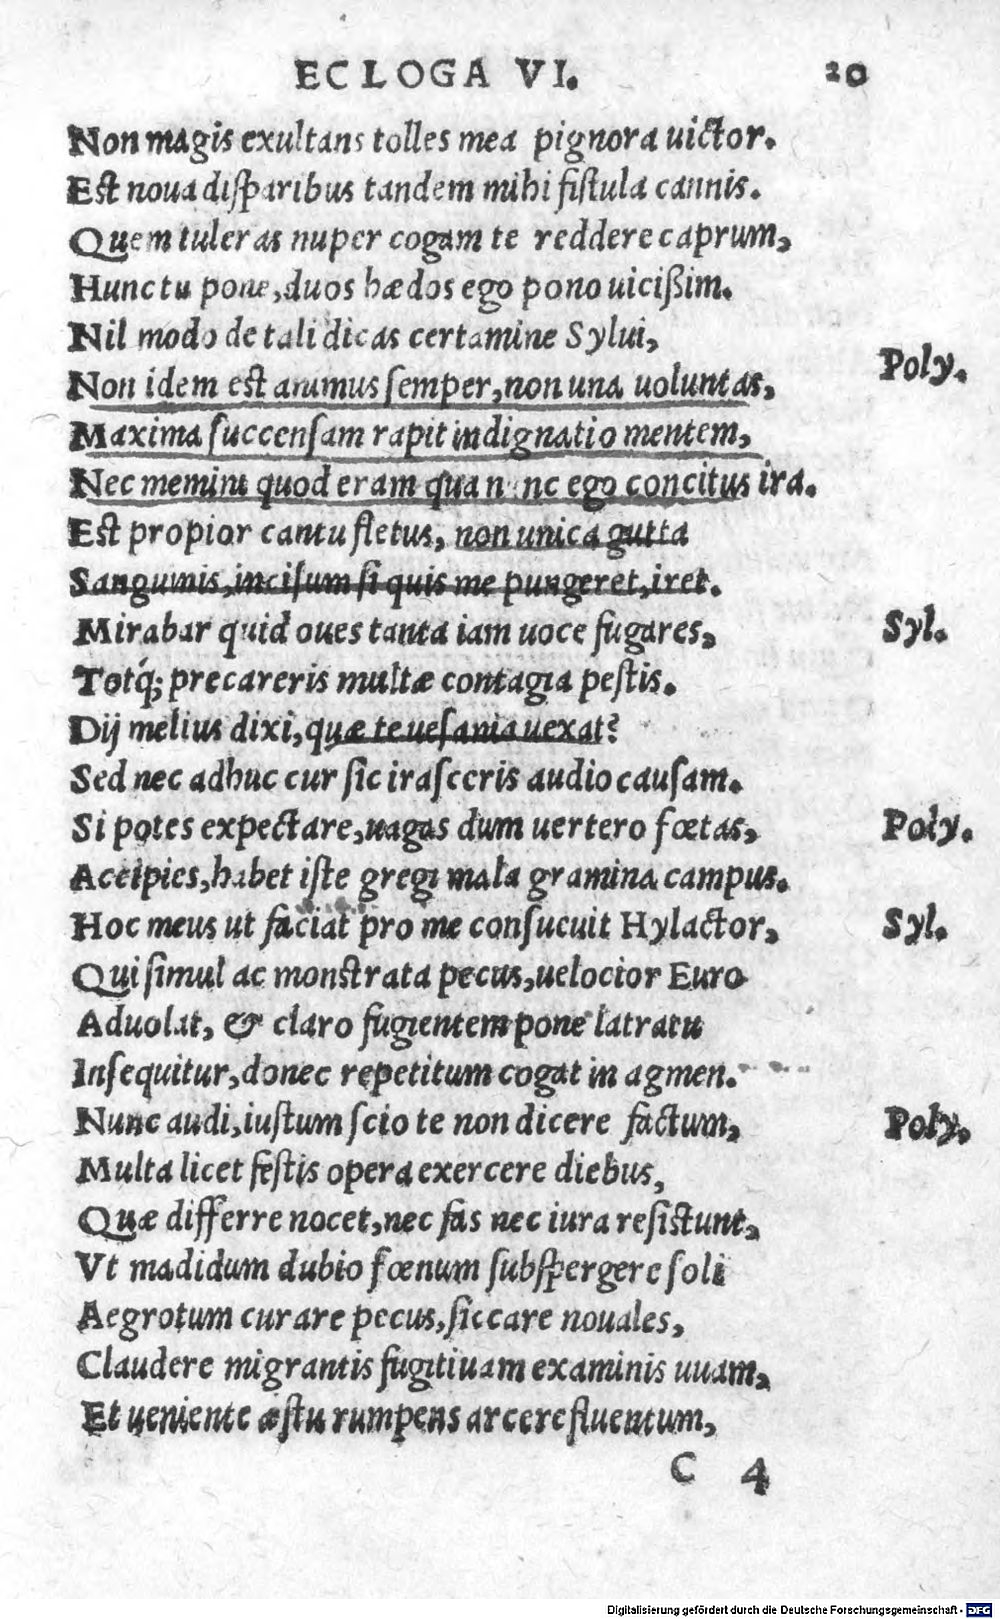 ECLOGA VI. 20
Non magis exultans tolles mea pignora uictor.
Est noua disparibus tandem mihi fistula cannis.
Quem tuleras nuper cogam te reddere caprum,
Hunc tu pone, duos hædos ego pono uicißim.
Nil modo de tali dicas certamine Sylui, Poly.
Non idem est animus semper, non una uoluntas,
Maxima succensam rapit indignatio mentem,
Nec memini quod eram quan nc ego concitus ira.
Est propior cantu fletus, non unica gutta
Sanguinis, incisum si quis me pungeret, iret.
Mirabar quid oues tanta iam uoce fugares, Syl.
Totq́; precareris multæ contagia pestis.
Dij melius dixi, quæ te uesania uexat?
Sed nec adhuc cur sic irasceris audio causam.
Si potes expectare, uagas dum uertero fœtas, Poly.
Accipies, habet iste gregi mala gramina campus.
Hoc meus ut faciat pro me consueuit Hylactor, Syl.
Qui simul ac monstrata pecus, uelocior Euro
Aduolat, & claro fugientem pone latratu
Insequitur, donec repetitum cogat in agmen.
Nunc audi, iustum scio te non dicere factum, Poly.
Multa licet festis opera exercere diebus,
Quæ differre nocet, nec fas nec iura resistunt,
Vt madidum dubio fœnum subspergere soli
Aegrotum curare pecus, siccare nouales,
Claudere migrantis fugitiuam examinis uuam,
Et ueniente æstu rumpens arcere fluentum,
C 4
Digitalisierung gefördert durch die Deutsche Forschungsgemeinschaft - DFG